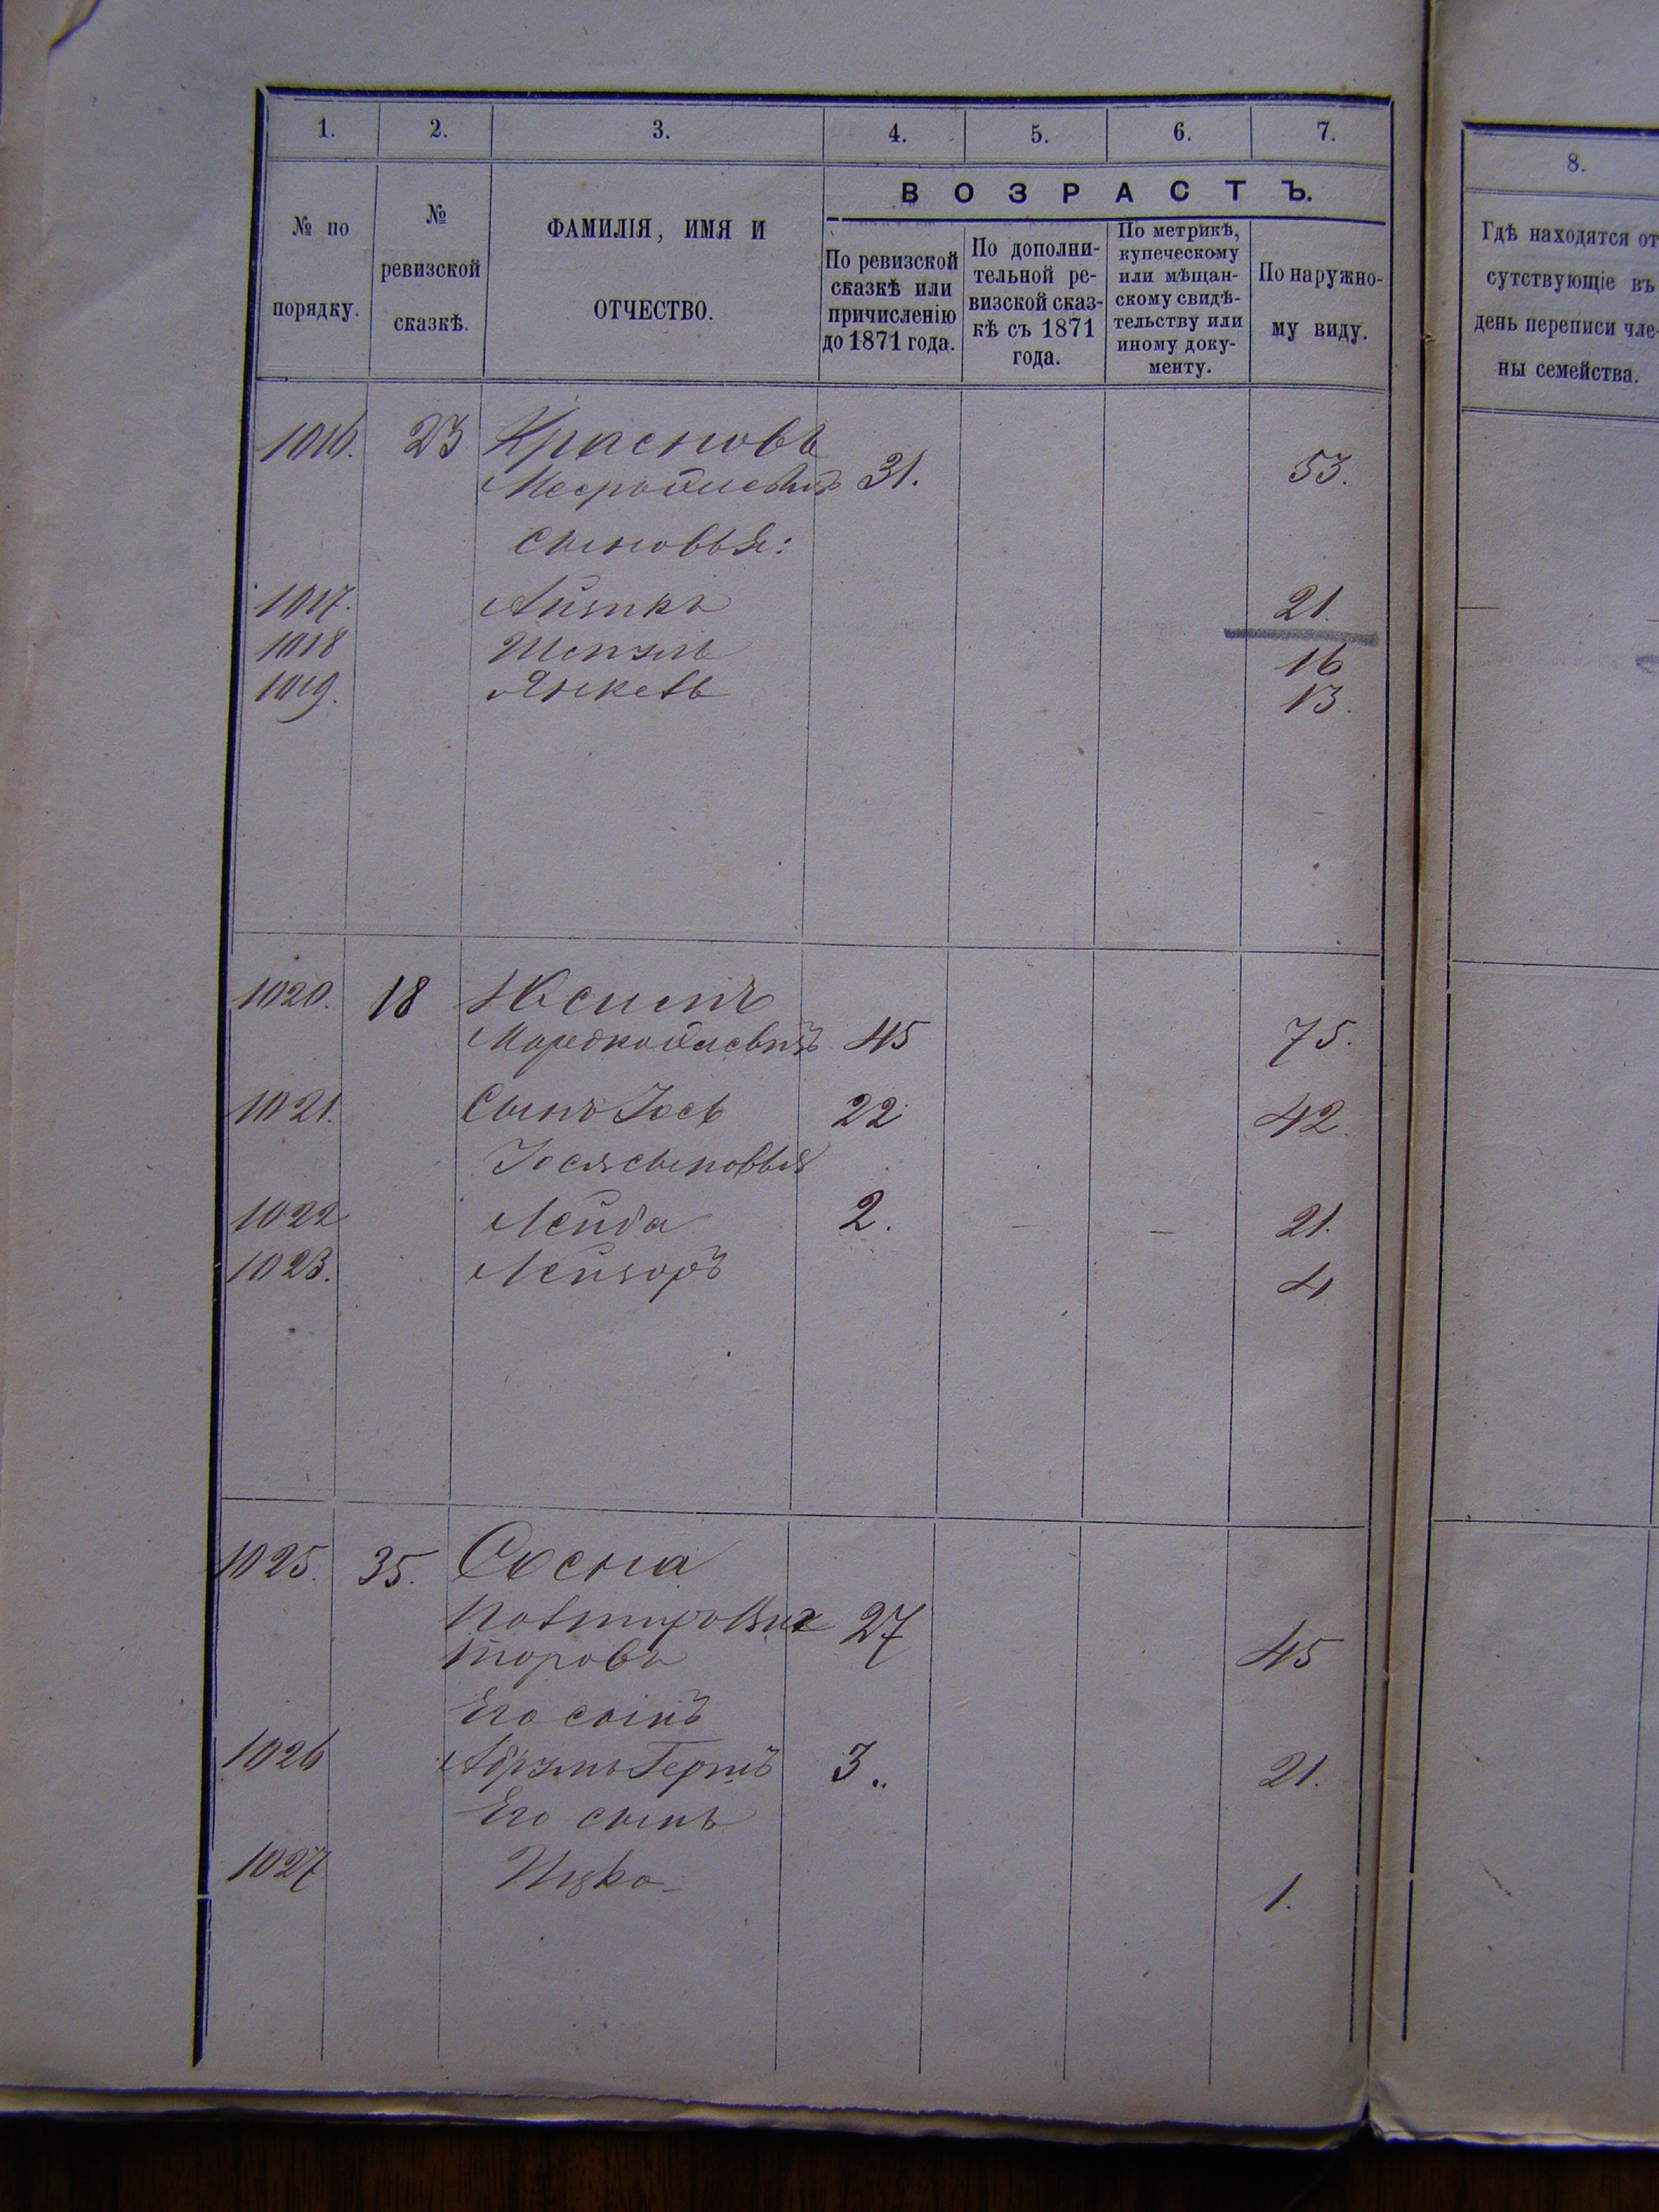 1. 2. 3. 4. 5. 6. 7.
№ по порядку.
№ ревизской сказкѣ.
ФАМИЛІЯ, ИМЯ И
ОТЧЕСТВО.
ВОЗРАСТЪ.
По ревизской
сказкѣ или
причисленію
до 1871 года.
По дополни-
тельной ре-
визской сказ-
кѣ съ 1871
года.
По метрикѣ,
купеческому
или мѣщан-
скому свидѣ-
тельству или
иному доку-
менту.
По наружно-
му виду.
1016. 23 Красновъ
31. 53.
Сыновья:
1017. 21.
1018 16
1019. Янкель 13.
1020. 18
45 75.
1021. Сынъ Іось 22 42.
Іося сыновья
1022 Лейба 2. — — 21.
1023. Лейзоръ 4
1025. 35. Сосна
27
45
Его сынъ
1026 3.. 21.
Его сынъ
1027 Ицко 1.
8.
Гдѣ находятся от
сутствующіе въ
день переписи чле-
ны семейства.